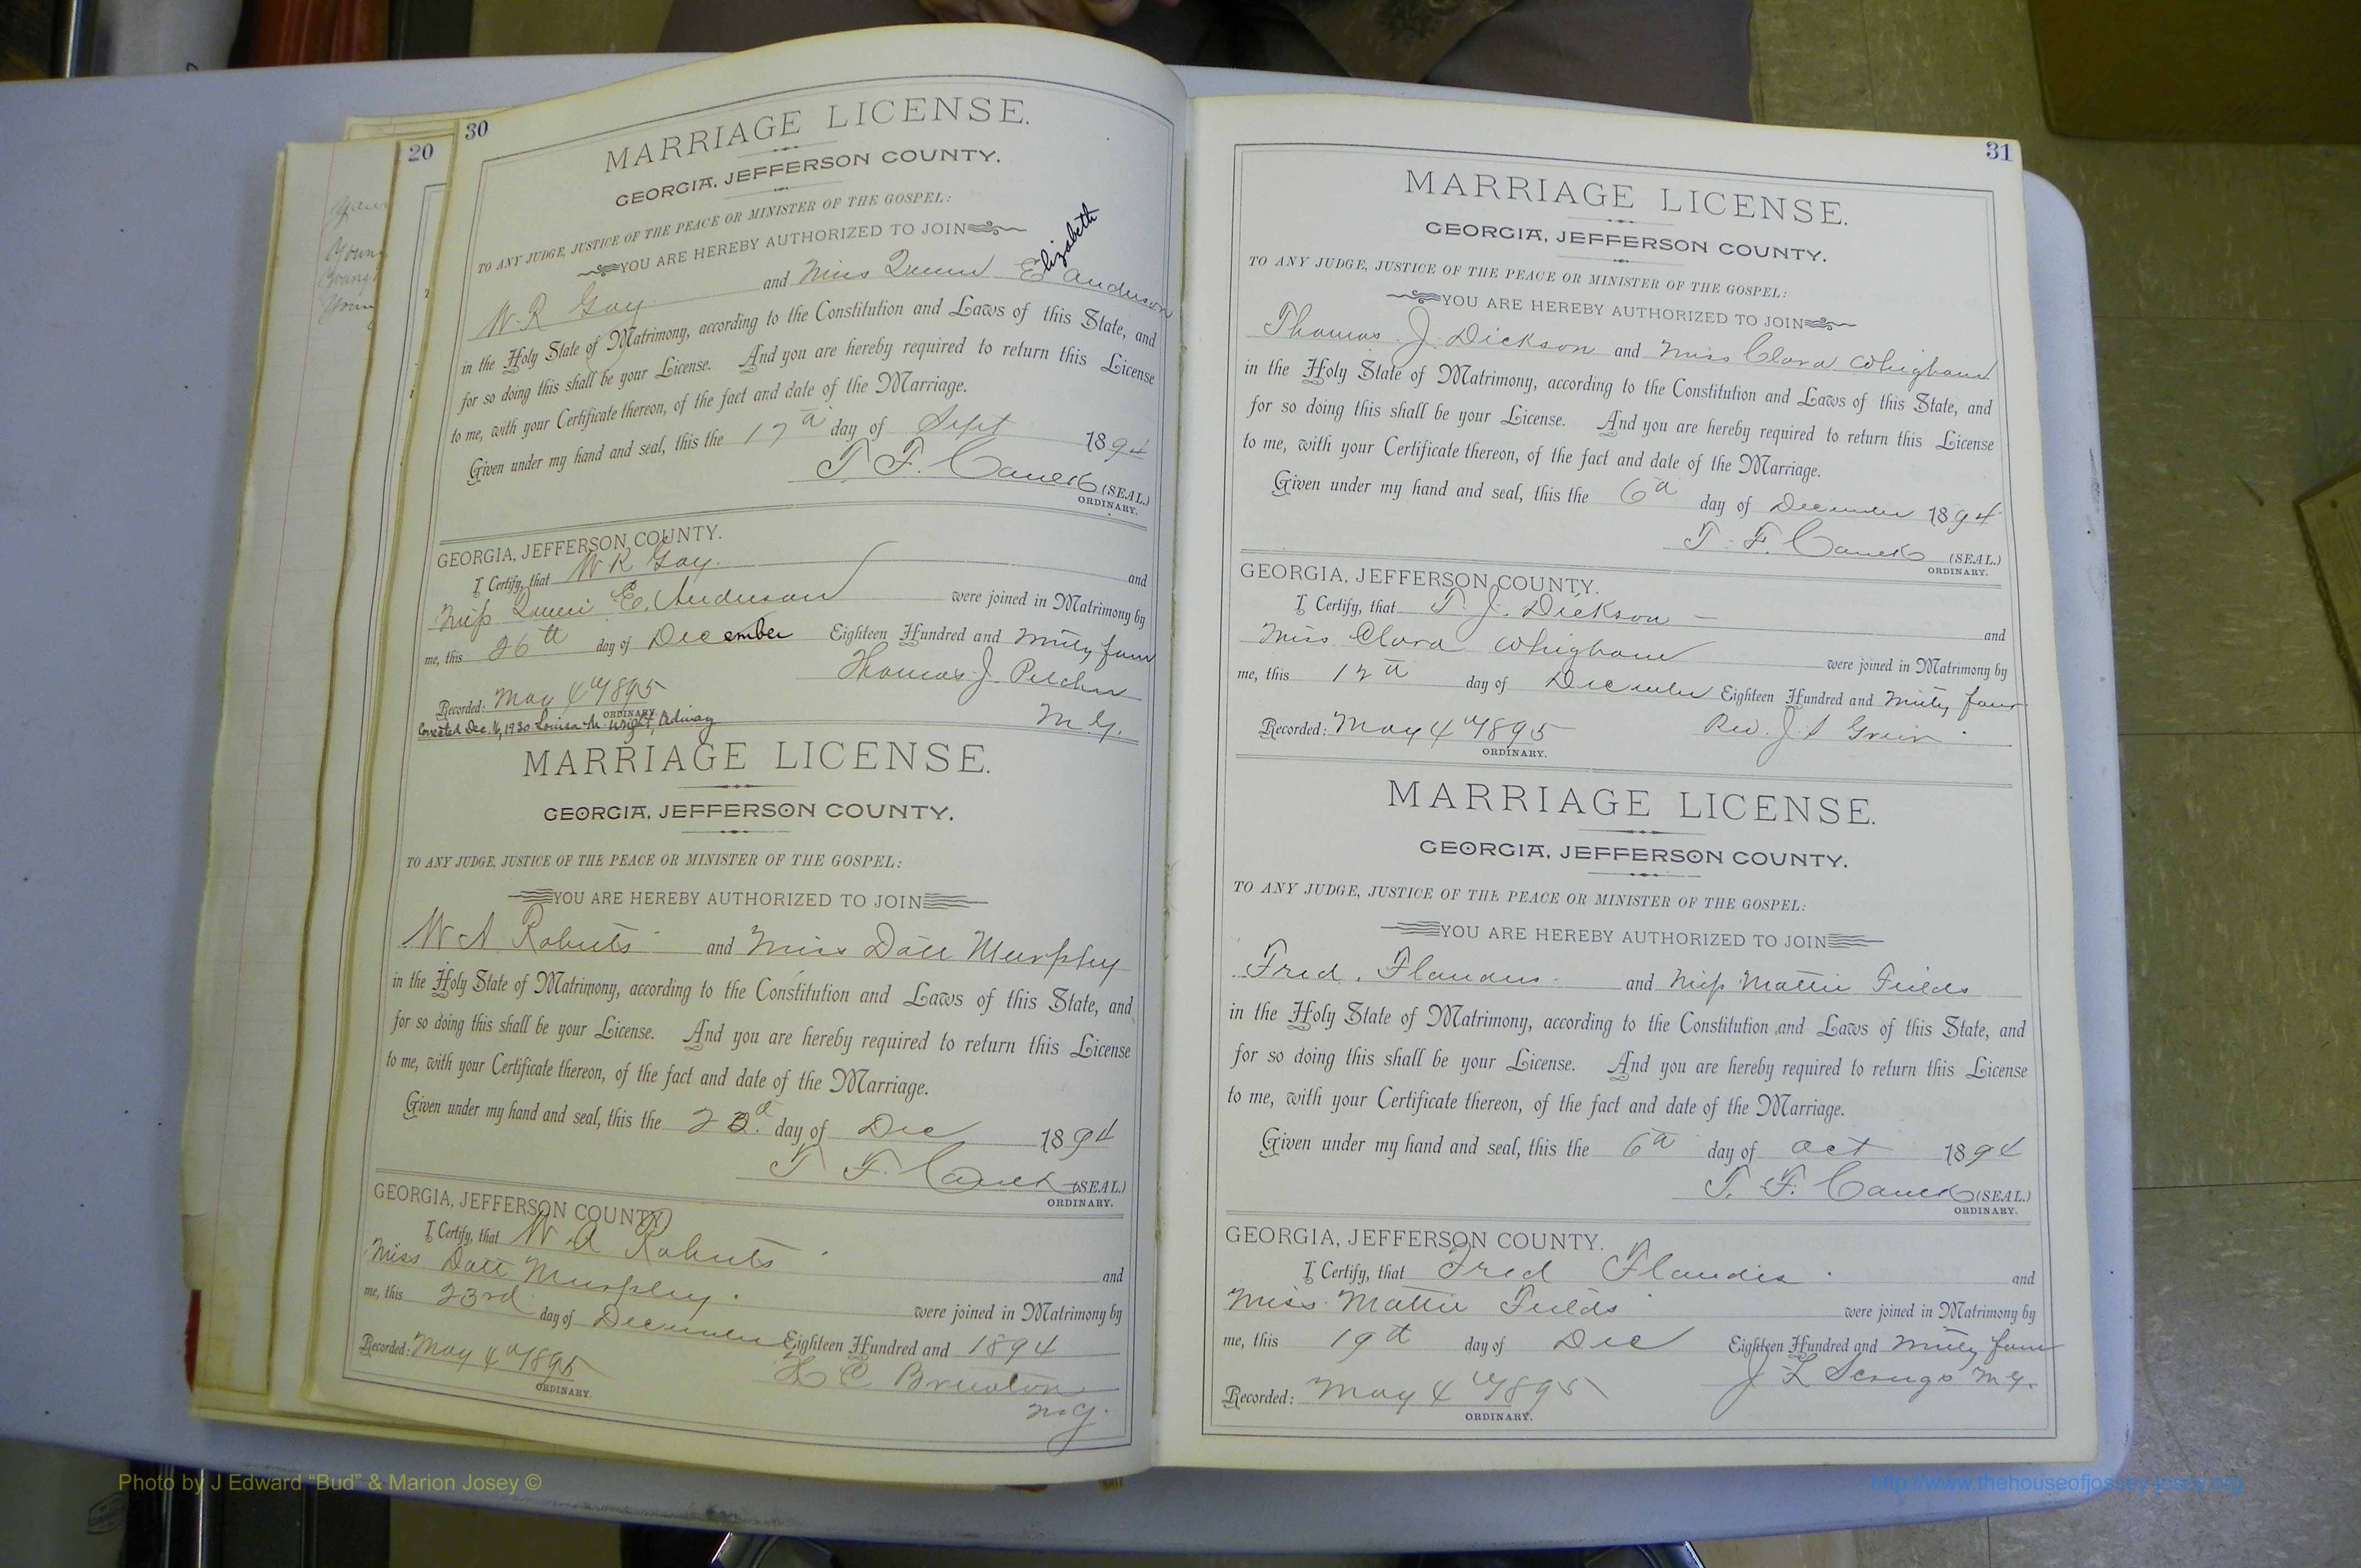 20
30
MARRIAGE LICENSE.
GEORGIA, JEFFERSON COUNTY.
TO ANY JUDGE, JUSTICE OF THE PEACE OR MINISTER OF THE GOSPEL:
YOU ARE HEREBY AUTHORIZED TO JOIN
W. R Gay and Miss Queen Elizabeth Anderson
in the Holy State of Matrimony, according to the Constitution and Laws of this State, and
for so doing this shall be your License. And you are hereby required to return this License
to me, with your Certificate thereon, of the fact and date of the Marriage.
Given under my hand and seal, this the 17th day of Sept 1894
T. F. (SEAL.)
ORDINARY.
GEORGIA, JEFFERSON COUNTY.
I Certify, that W R Gay. and
Miss E. Anderson were joined in Matrimony by
me, this 26th day of December Eighteen Hundred and Ninty four
Thomas J. Pilcher
M.G.
Recorded: May 4th 1895
ORDINARY.
Corrected Dec. 16, 1930 Louisa M. Wright, Ordinary
MARRIAGE LICENSE.
GEORGIA, JEFFERSON COUNTY.
TO ANY JUDGE, JUSTICE OF THE PEACE OR MINISTER OF THE GOSPEL:
YOU ARE HEREBY AUTHORIZED TO JOIN
W A Roberts and Miss Murphy
in the Holy State of Matrimony, according to the Constitution and Laws of this State, and
for so doing this shall be your License. And you are hereby required to return this License
to me, with your Certificate thereon, of the fact and date of the Marriage.
Given under my hand and seal, this the day of Dec 1894
T F. (SEAL.)
ORDINARY.
GEORGIA, JEFFERSON COUNTY.
I Certify, that W A Roberts and
Miss Murphy. were joined in Matrimony by
me, this 23rd day of December Eighteen Hundred and 1894
Recorded: May 4th 1895 H C Bruton
ORDINARY.
M.G.
31
MARRIAGE LICENSE.
GEORGIA, JEFFERSON COUNTY.
TO ANY JUDGE, JUSTICE OF THE PEACE OR MINISTER OF THE GOSPEL:
YOU ARE HEREBY AUTHORIZED TO JOIN
Thomas J. Dickson and Miss Clara Whigham
in the Holy State of Matrimony, according to the Constitution and Laws of this State, and
for so doing this shall be your License. And you are hereby required to return this License
to me, with your Certificate thereon, of the fact and date of the Marriage.
Given under my hand and seal, this the 6th day of December 1894
T. F. (SEAL.)
ORDINARY.
GEORGIA, JEFFERSON COUNTY.
I Certify, that T. J. Dickson and
Miss Clara Whigham were joined in Matrimony by
me, this 12th day of December Eighteen Hundred and Ninty four
Recorded: May 4th 1895 Rev. J. S
ORDINARY.
MARRIAGE LICENSE.
GEORGIA, JEFFERSON COUNTY.
TO ANY JUDGE, JUSTICE OF THE PEACE OR MINISTER OF THE GOSPEL:
YOU ARE HEREBY AUTHORIZED TO JOIN
Fred. Flanders and Miss Mattie Fields
in the Holy State of Matrimony, according to the Constitution and Laws of this State, and
for so doing this shall be your License. And you are hereby required to return this License
to me, with your Certificate thereon, of the fact and date of the Marriage.
Given under my hand and seal, this the 6th day of Oct 1894
T. F. (SEAL.)
ORDINARY.
GEORGIA, JEFFERSON COUNTY.
I Certify, that Fred Flanders and
Miss Mattie Fields were joined in Matrimony by
me, this 19th day of Dec Eighteen Hundred and Ninty four
J L Scrugs M.G.
Recorded: May 4th 1895
ORDINARY.
Photo by J Edward “Bud” & Marion Josey ©
http://www.thehouseofjossey-josey.org